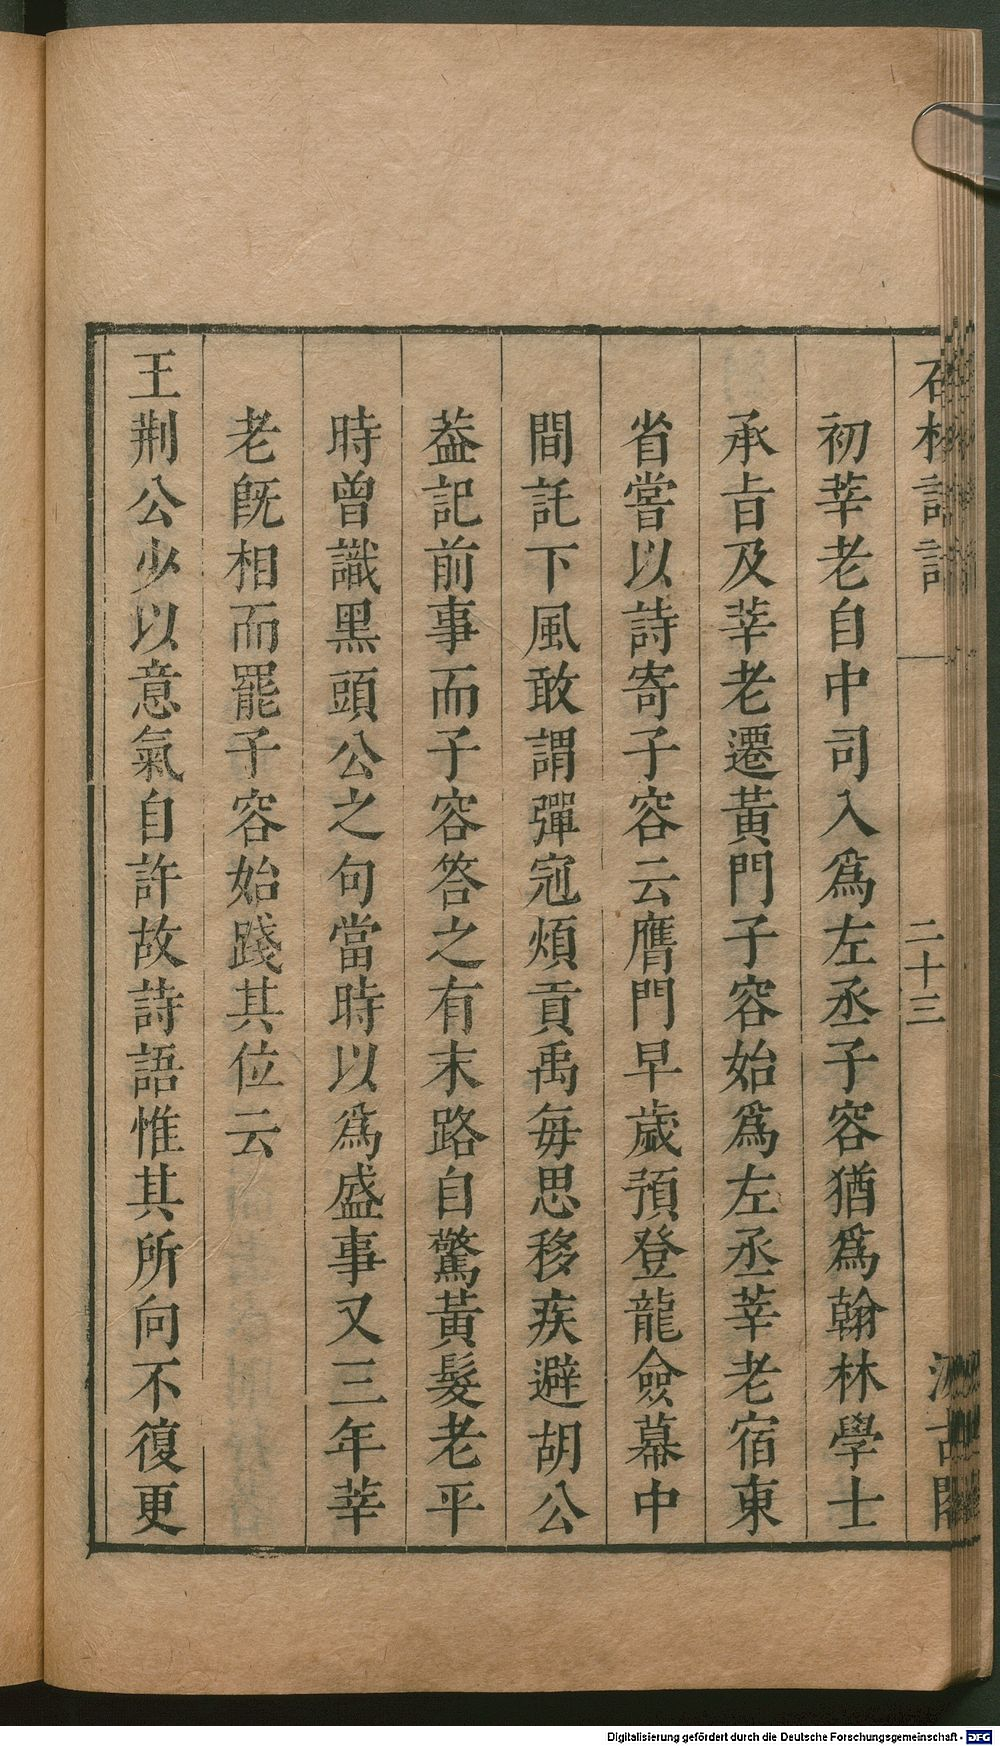 石林詩話
二十三
汲古閣
初莘老自中司入爲左丞子容猶爲翰林學士
承㫖及莘老遷黃門子容始爲左丞莘老宿東
省嘗以詩寄子容云膺門早歲預登龍儉幕中
間託下風敢謂彈冠煩貢禹毎思移疾避胡公
葢記前事而子容答之有末路自驚黃髮老平
時曾識黑頭公之句當時以爲盛事又三年莘
老旣相而罷子容始踐其位云
王荆公少以意氣自許故詩語惟其所向不復更
Digitalisierung gefördert durch die Deutsche Forschungsgemeinschaft - DFG